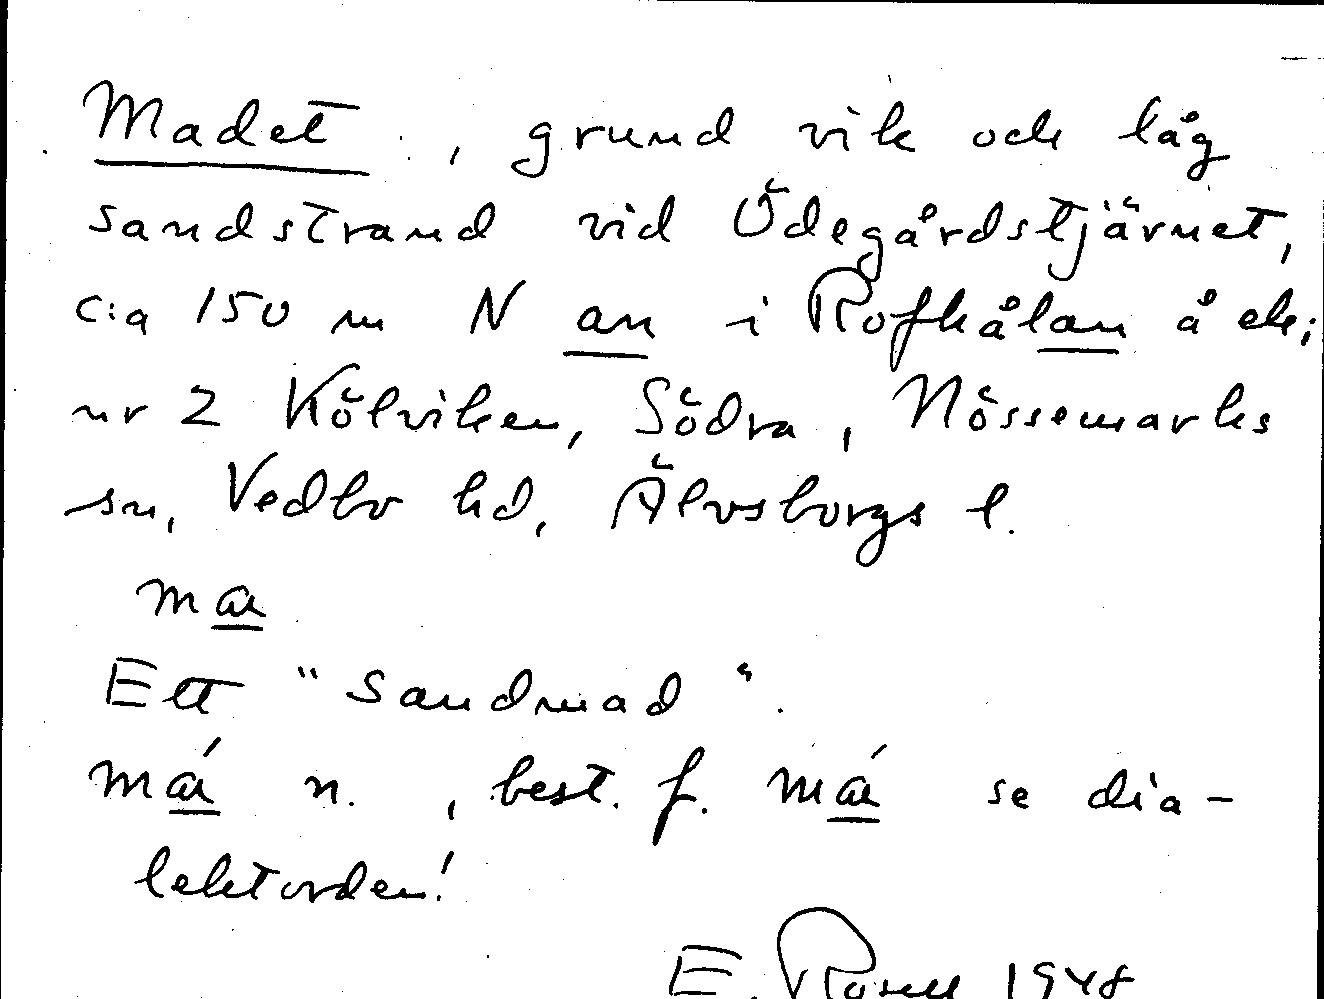 Madet , grund vik och låg
sandstrand vid Ödegårdstjärnet,
c:a 150 m N an i Rofkålan å ek;
nr 2 Kölviken, Södra, Nössemarks
sn, Vedbo hd, Älvsborgs l.
ma
Ett "sandmad".
má n. , best. f. má se dia-
lektorden!
E. Rosell 1948